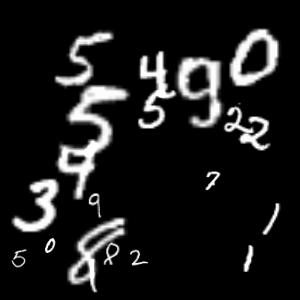 5 4 9 0
5 5 2 2
9 7
3 9 1
5 0 8 8 2 1